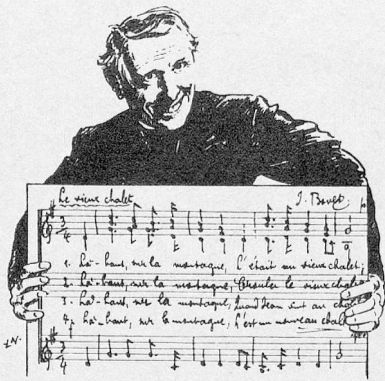 Le vieux chalet J. Bovet
3 4
1. Là-haut, sur la montagne, L'était un vieux chalet;
2. Là-haut, sur la montagne, Croula le vieux chalet;
3. Là-haut, sur la montagne, Quand Jean vint au chalet
4. Là-haut, sur la montagne, L'est un nouveau chalet
3 4